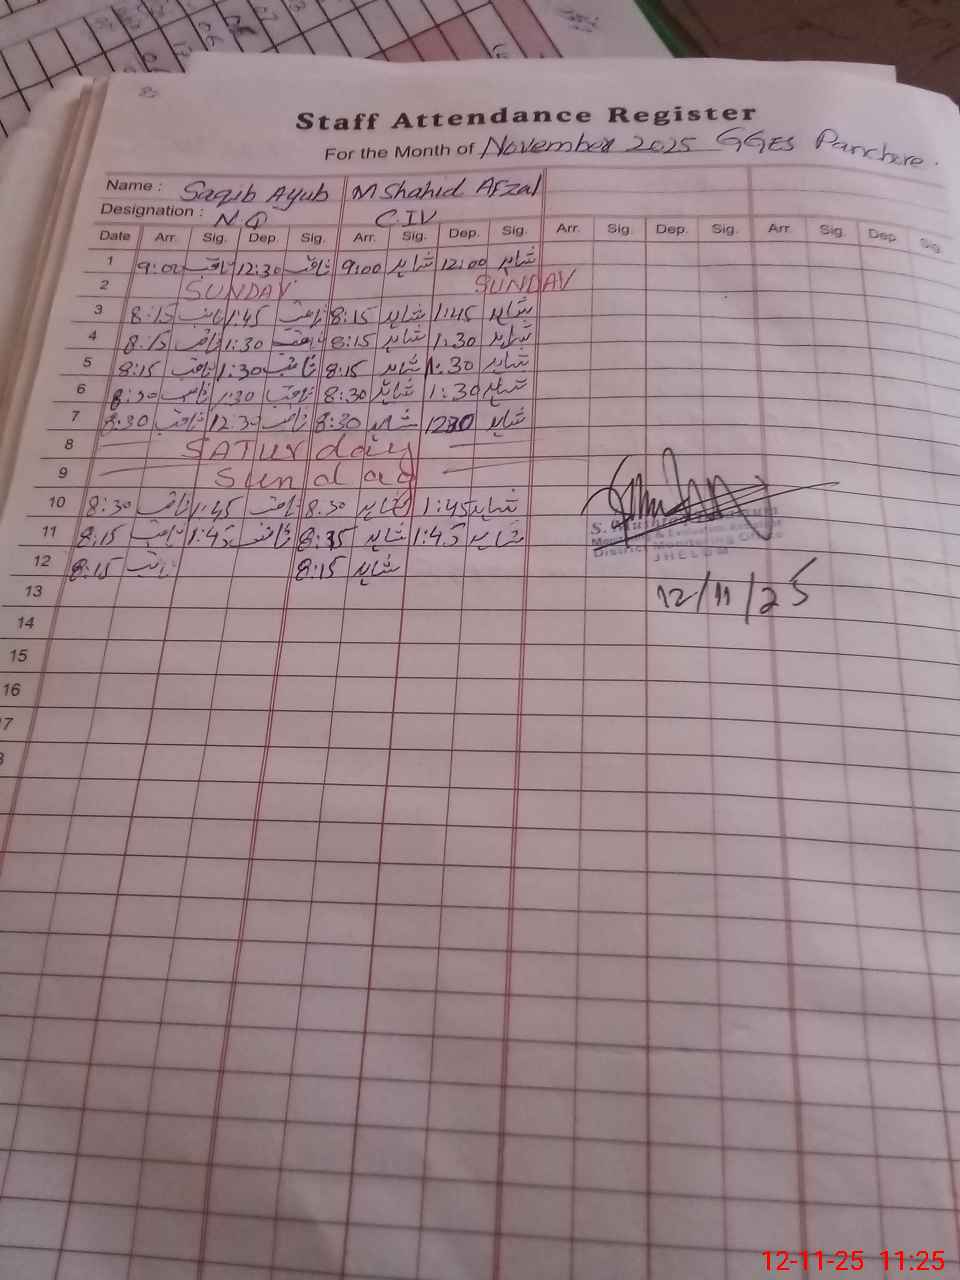 Staff Attendance Register
For the Month of November 2025 GGES
Name : Saqib Ayub M Shahid Afzal
Designation : N.Q C.IV
Date Arr. Sig. Dep. Sig. Arr. Sig. Dep. Sig. Arr. Sig. Dep. Sig. Arr. Sig. Dep. Sig.
1 9:00 ثاقب 12:30 ثاقب 9:00 شاہد 12:00 شاہد
2 SUNDAY SUNDAY
3 8:15 ثاقب 1:45 ثاقب 8:15 شاہد 1:45 شاہد
4 8:15 ثاقب 1:30 ثاقب 8:15 شاہد 1:30 شاہد
5 8:15 ثاقب 1:30 ثاقب 8:15 شاہد 1:30 شاہد
6 8:30 ثاقب 1:30 ثاقب 8:30 شاہد 1:30 شاہد
7 8:30 ثاقب 12:30 ثاقب 8:30 شاہد 1230 شاہد
8 SATURday
9 Sunday
10 8:30 ثاقب 1:45 ثاقب 8:30 شاہد 1:45 شاہد
11 8:15 ثاقب 1:45 ثاقب 8:35 شاہد 1:45 شاہد
District Monitoring Office
JHELUM
12 8:15 ثاقب 8:15 شاہد
12/11/25
13
14
15
16
12-11-25 11:25